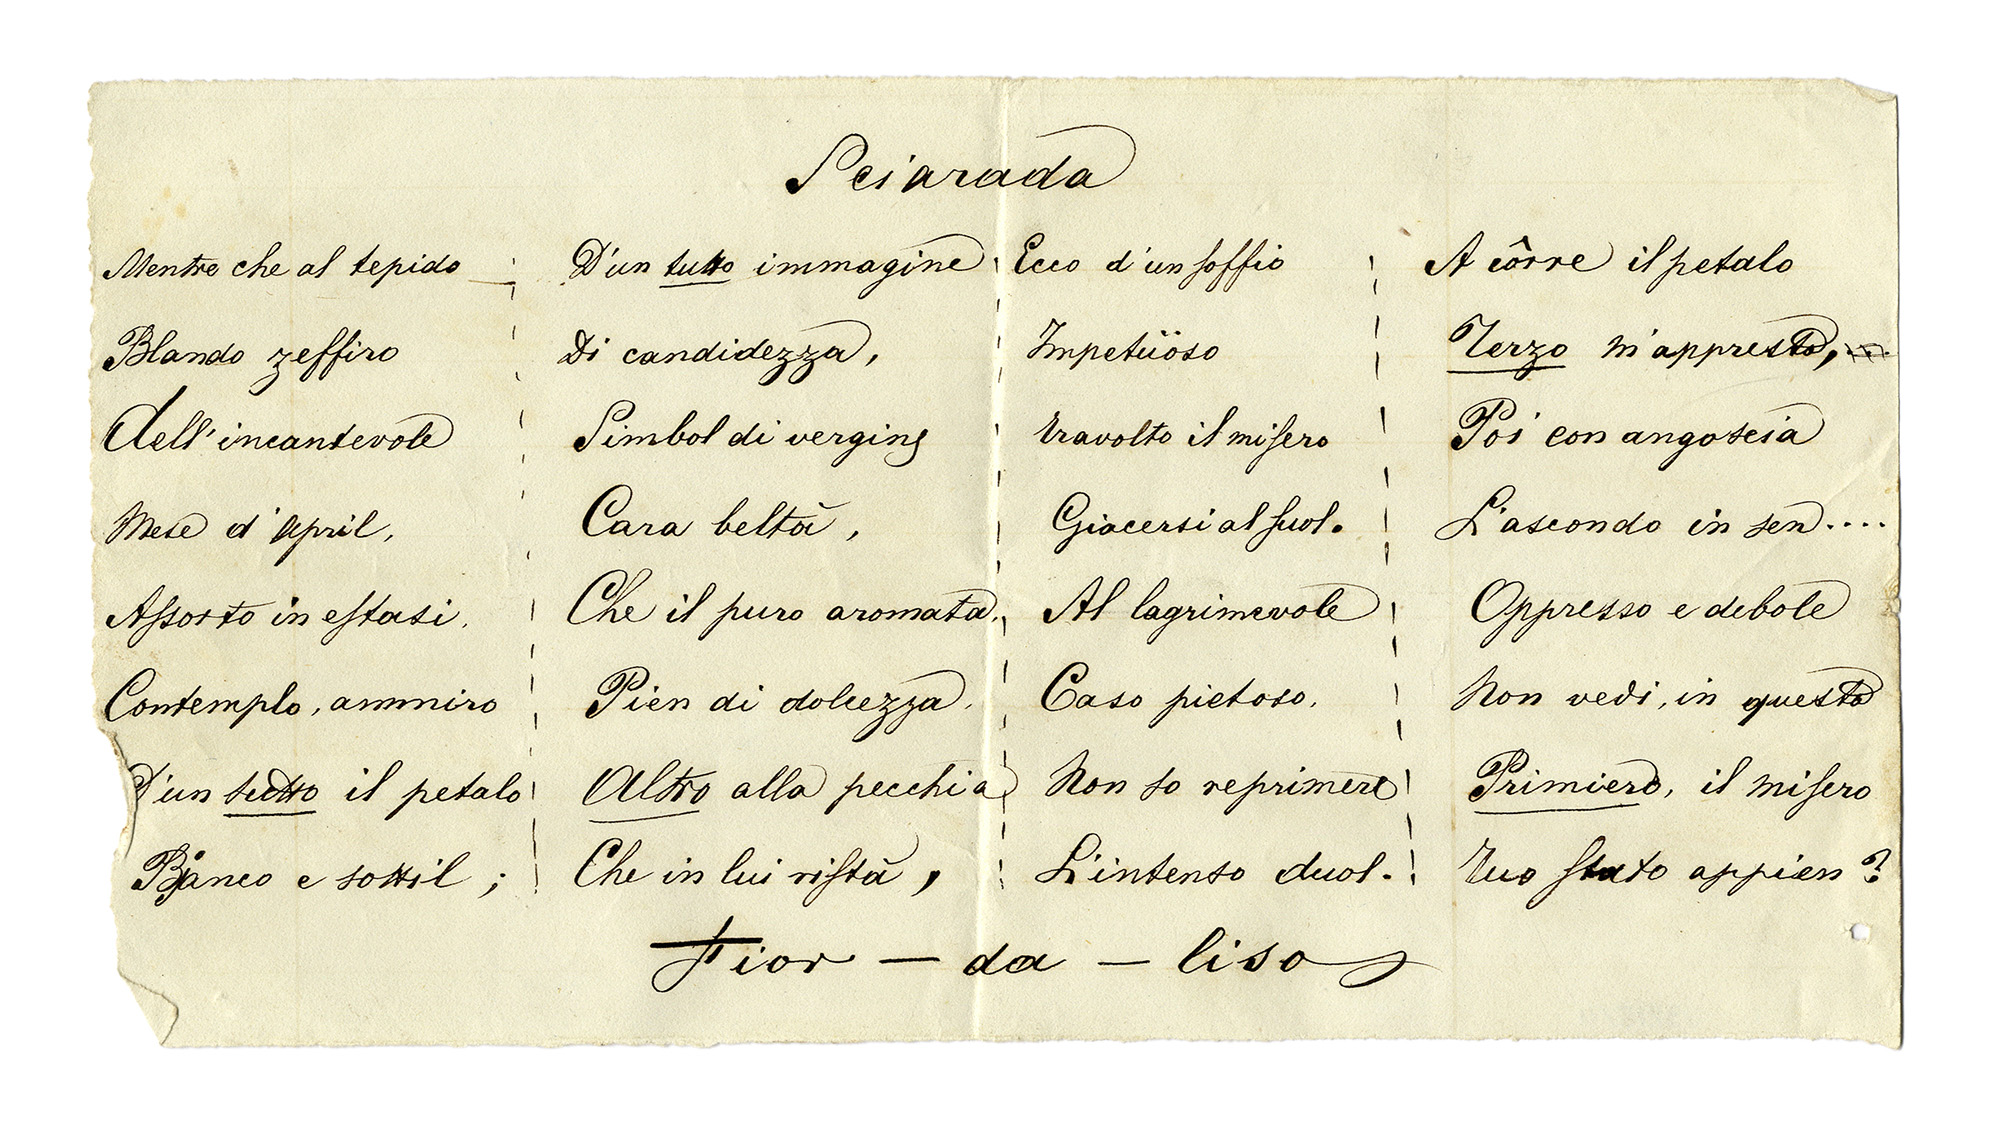 Sciarada
Mentre che al tepido
Blando zeffiro
Dell'incantevole
Mese d'April,
Assorto in estasi.
Contemplo, ammiro
D'un tutto il petalo
Bianco e sottil;
D'un tutto immagine
Di candidezza,
Simbol di vergine
Cara beltà,
Che il puro aromata.
Pien di dolcezza.
Altro alla pecchia
Che in lui ristà,
Ecco d'un soffio
Impetüoso
travolto il misero
Giacersi al suol.
Al lagrimevole
Caso pietoso.
Non so reprimere
L'intenso duol.
A côrre il petalo
Terzo m'appresto,
Poi con angoscia
L'ascondo in sen....
Oppresso e debole
Non vedi, in questo
Primiero, il misero
Tuo stato appien?
Fior — da — liso